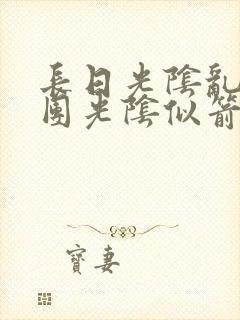 長日光陰亂
園光陰似箭
寶妻